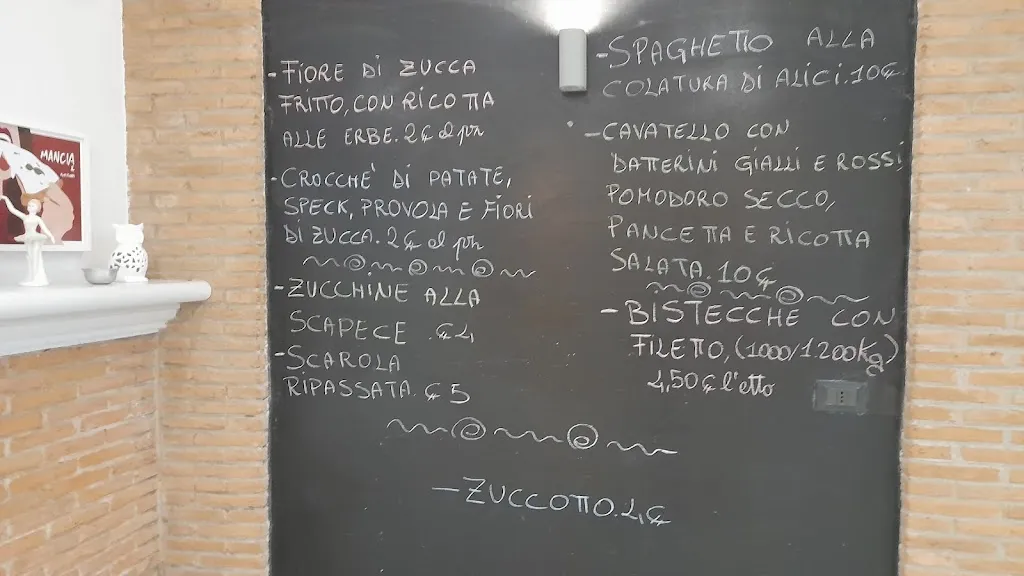 MANCIA
- FIORE DI ZUCCA
FRITTO, CON RICOTTA
ALLE ERBE. 2€ al pz
- CROCCHE' DI PATATE,
SPECK, PROVOLA E FIORI
DI ZUCCA. 2€ al pz
- ZUCCHINE ALLA
SCAPECE . €4
- SCAROLA
RIPASSATA. € 5
- SPAGHETTO ALLA
COLATURA DI ALICI. 10€
- CAVATELLO CON
DATTERINI GIALLI E ROSSI,
POMODORO SECCO,
PANCETTA E RICOTTA
SALATA. 10€
- BISTECCHE CON
FILETTO, (1000/1.200Kg)
4,50€ l'etto
- ZUCCOTTO. 4€